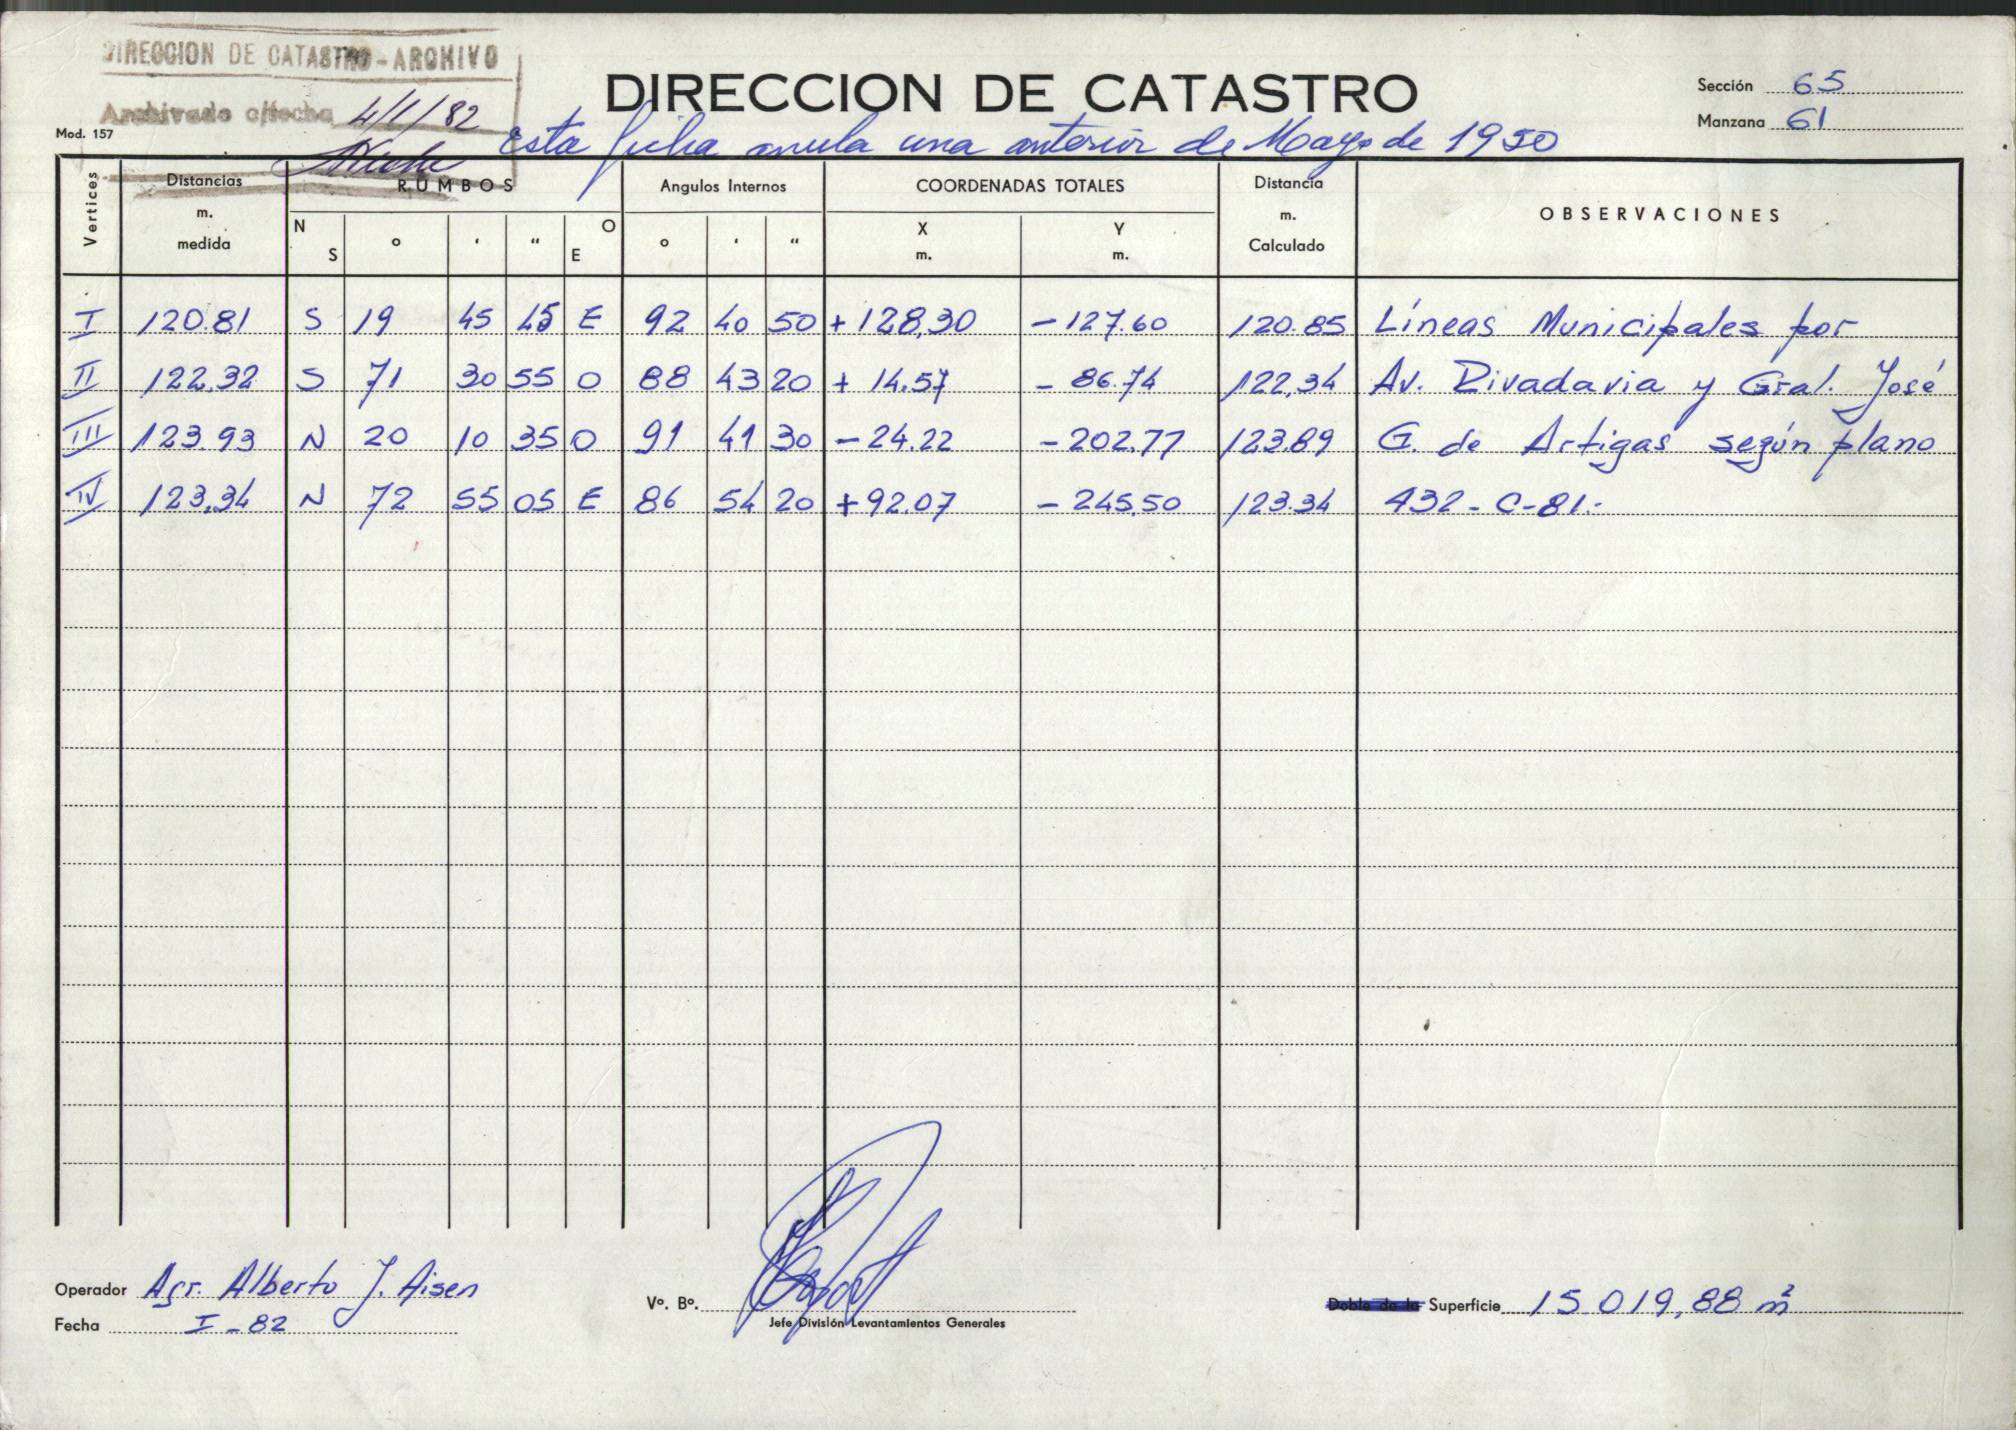 DIRECCION DE CATASTRO - ARCHIVO
Archivado c/fecha 4/1/82
Mod. 157
DIRECCION DE CATASTRO
Esta ficha anula una anterior de Mayo de 1950
Sección 65
Manzana 61
Vertices Distancias m. medida RUMBOS Angulos Internos COORDENADAS TOTALES Distancia m. Calculado OBSERVACIONES
N S ° ' " O E ° ' " X m. Y m.
I 120.81 S 19 45 45 E 92 40 50 +128,30 -127.60 120.85 Líneas Municipales por
II 122,32 S 71 30 55 O 88 43 20 + 14.57 - 86.74 122,34 Av. Rivadavia y Gral. José
III 123.93 N 20 10 35 O 91 41 30 -24.22 -202.77 123.89 G. de Artigas según plano
IV 123,34 N 72 55 05 E 86 54 20 +92.07 -245,50 123.34 432-C-81.-
Operador Agr. Alberto J. Aisen
Fecha I-82
Vº. Bº.
Jefe División Levantamientos Generales
Doble de la Superficie 15 019,88 m²